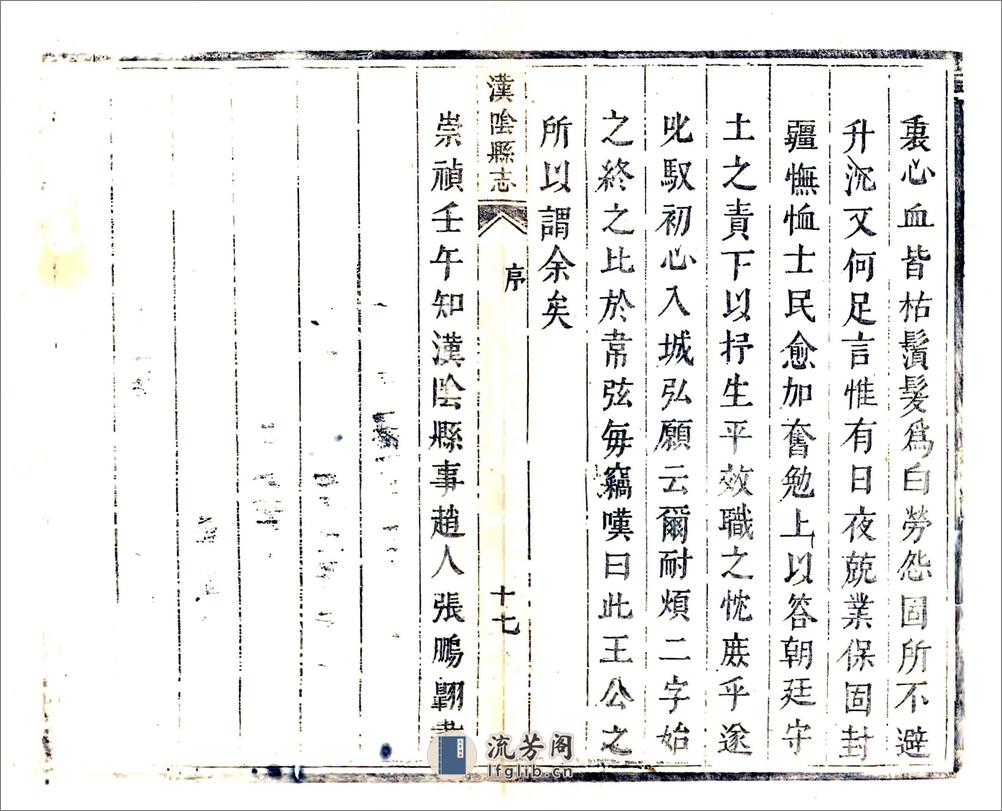 裏心血皆枯鬚髮爲白勞怨固所不避
升沉又何足言惟有日夜兢業保固封
疆憮恤士民愈加奮勉上以答朝廷守
土之責下以抒生平效職之忱庶乎遂
叱馭初心入城弘願云爾耐煩二字始
之終之比於韋弦每竊嘆曰此王公之
所以謂余矣
漢陰縣志
序
十七
崇禎壬午知漢陰縣事趙人張鵬翾
流芳阁
lfglib.cn